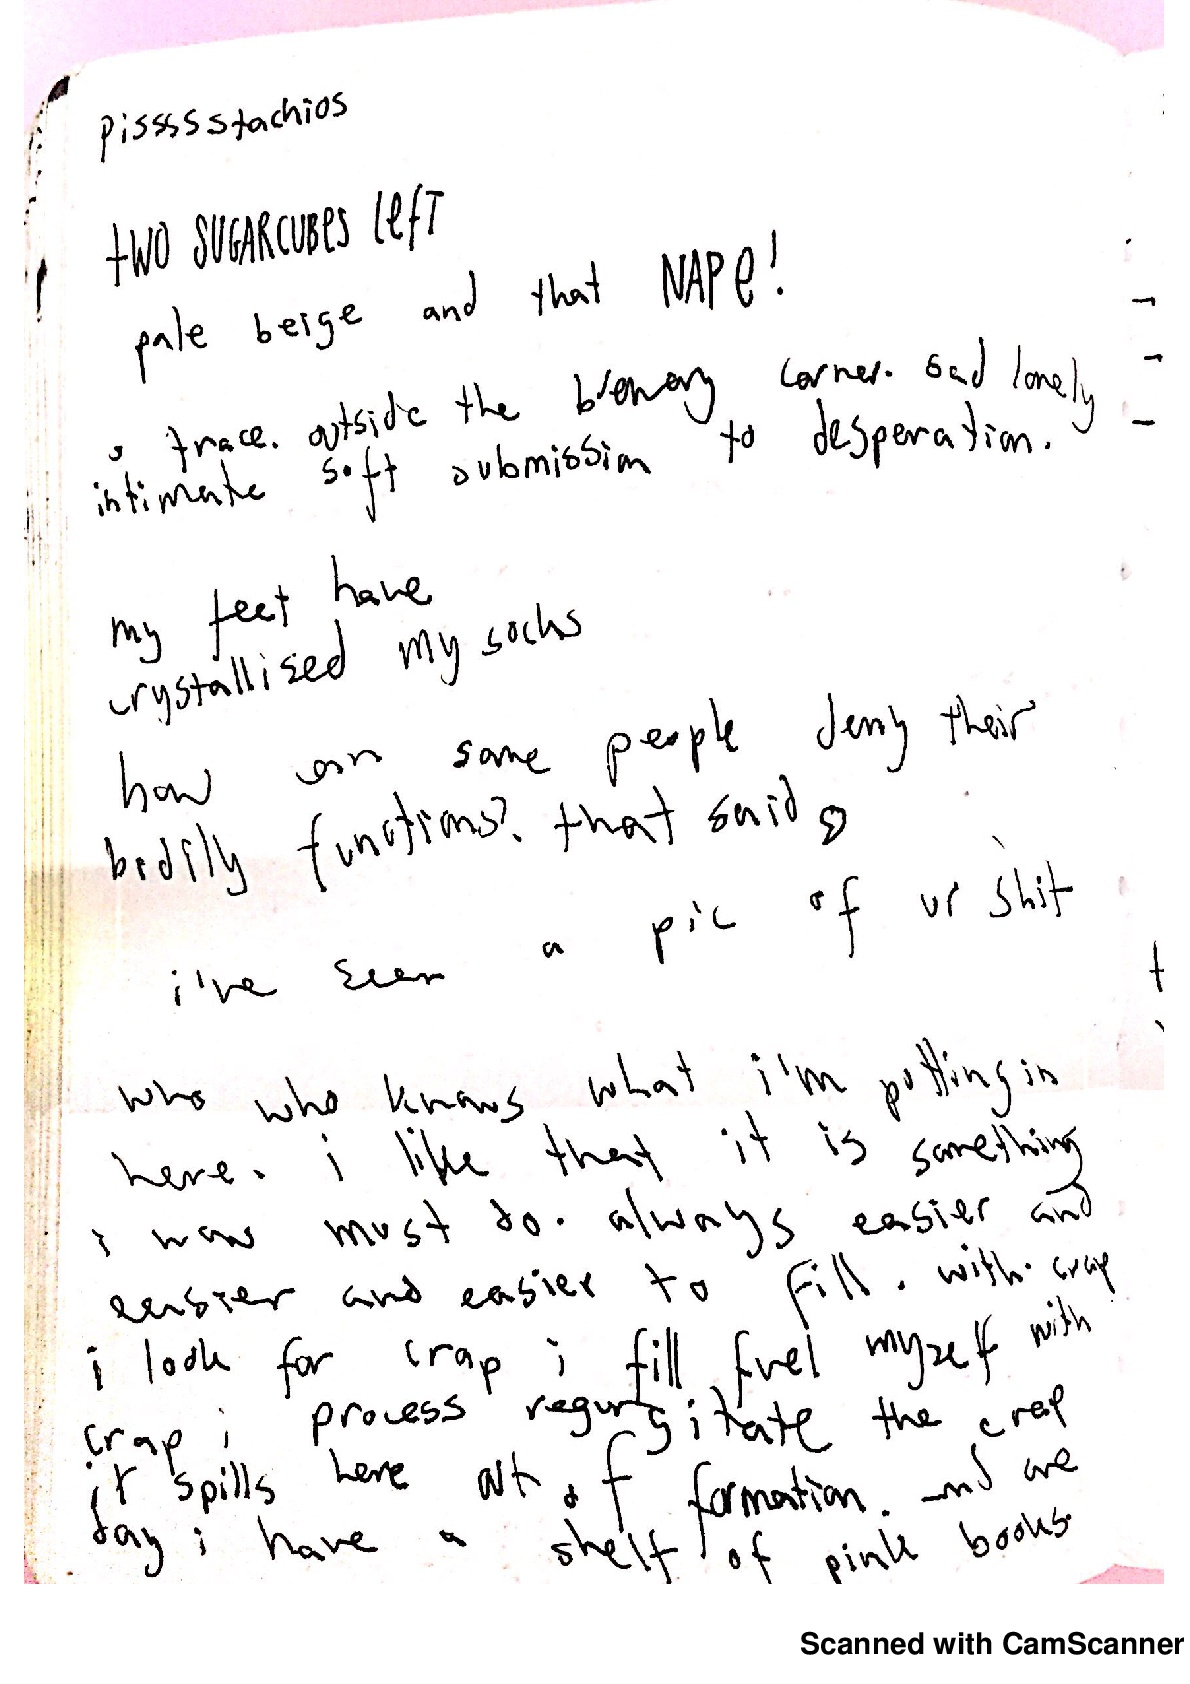 pissssstachios
two SUGARCUBES left
pale beige and that NAPe!
trace. outside the brewery corner. sad lonely
intimate soft submission to desperation.
my feet have
crystallised my socks
how can some people deny their
bodily functions?. that said,
i've seen a pic of ur shit
who who knows what i'm putting in
here. i like that it is something
i now must do. always easier and
easier and easier to fill. with. crap
i look for crap i fill fuel myself with
crap i process regurgitate the crap
it spills here out of formation. and one
day i have a shelf of pink books
Scanned with CamScanner